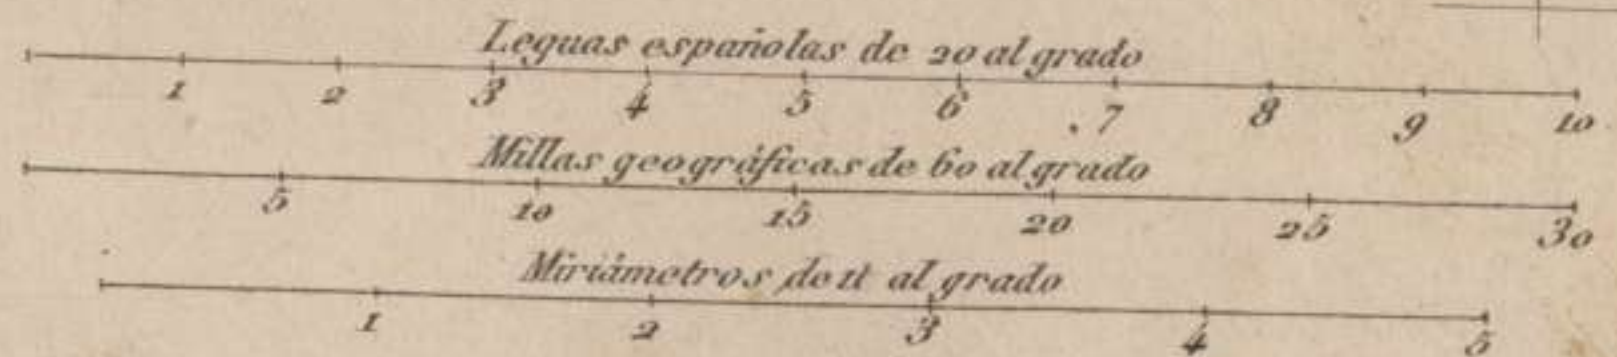 Leguas españolas de 20 al grado
1 2 3 4 5 6 7 8 9 10
Millas geográficas de 60 al grado
5 10 15 20 25 30
Miriámetros de 11 al grado
1 2 3 4 5